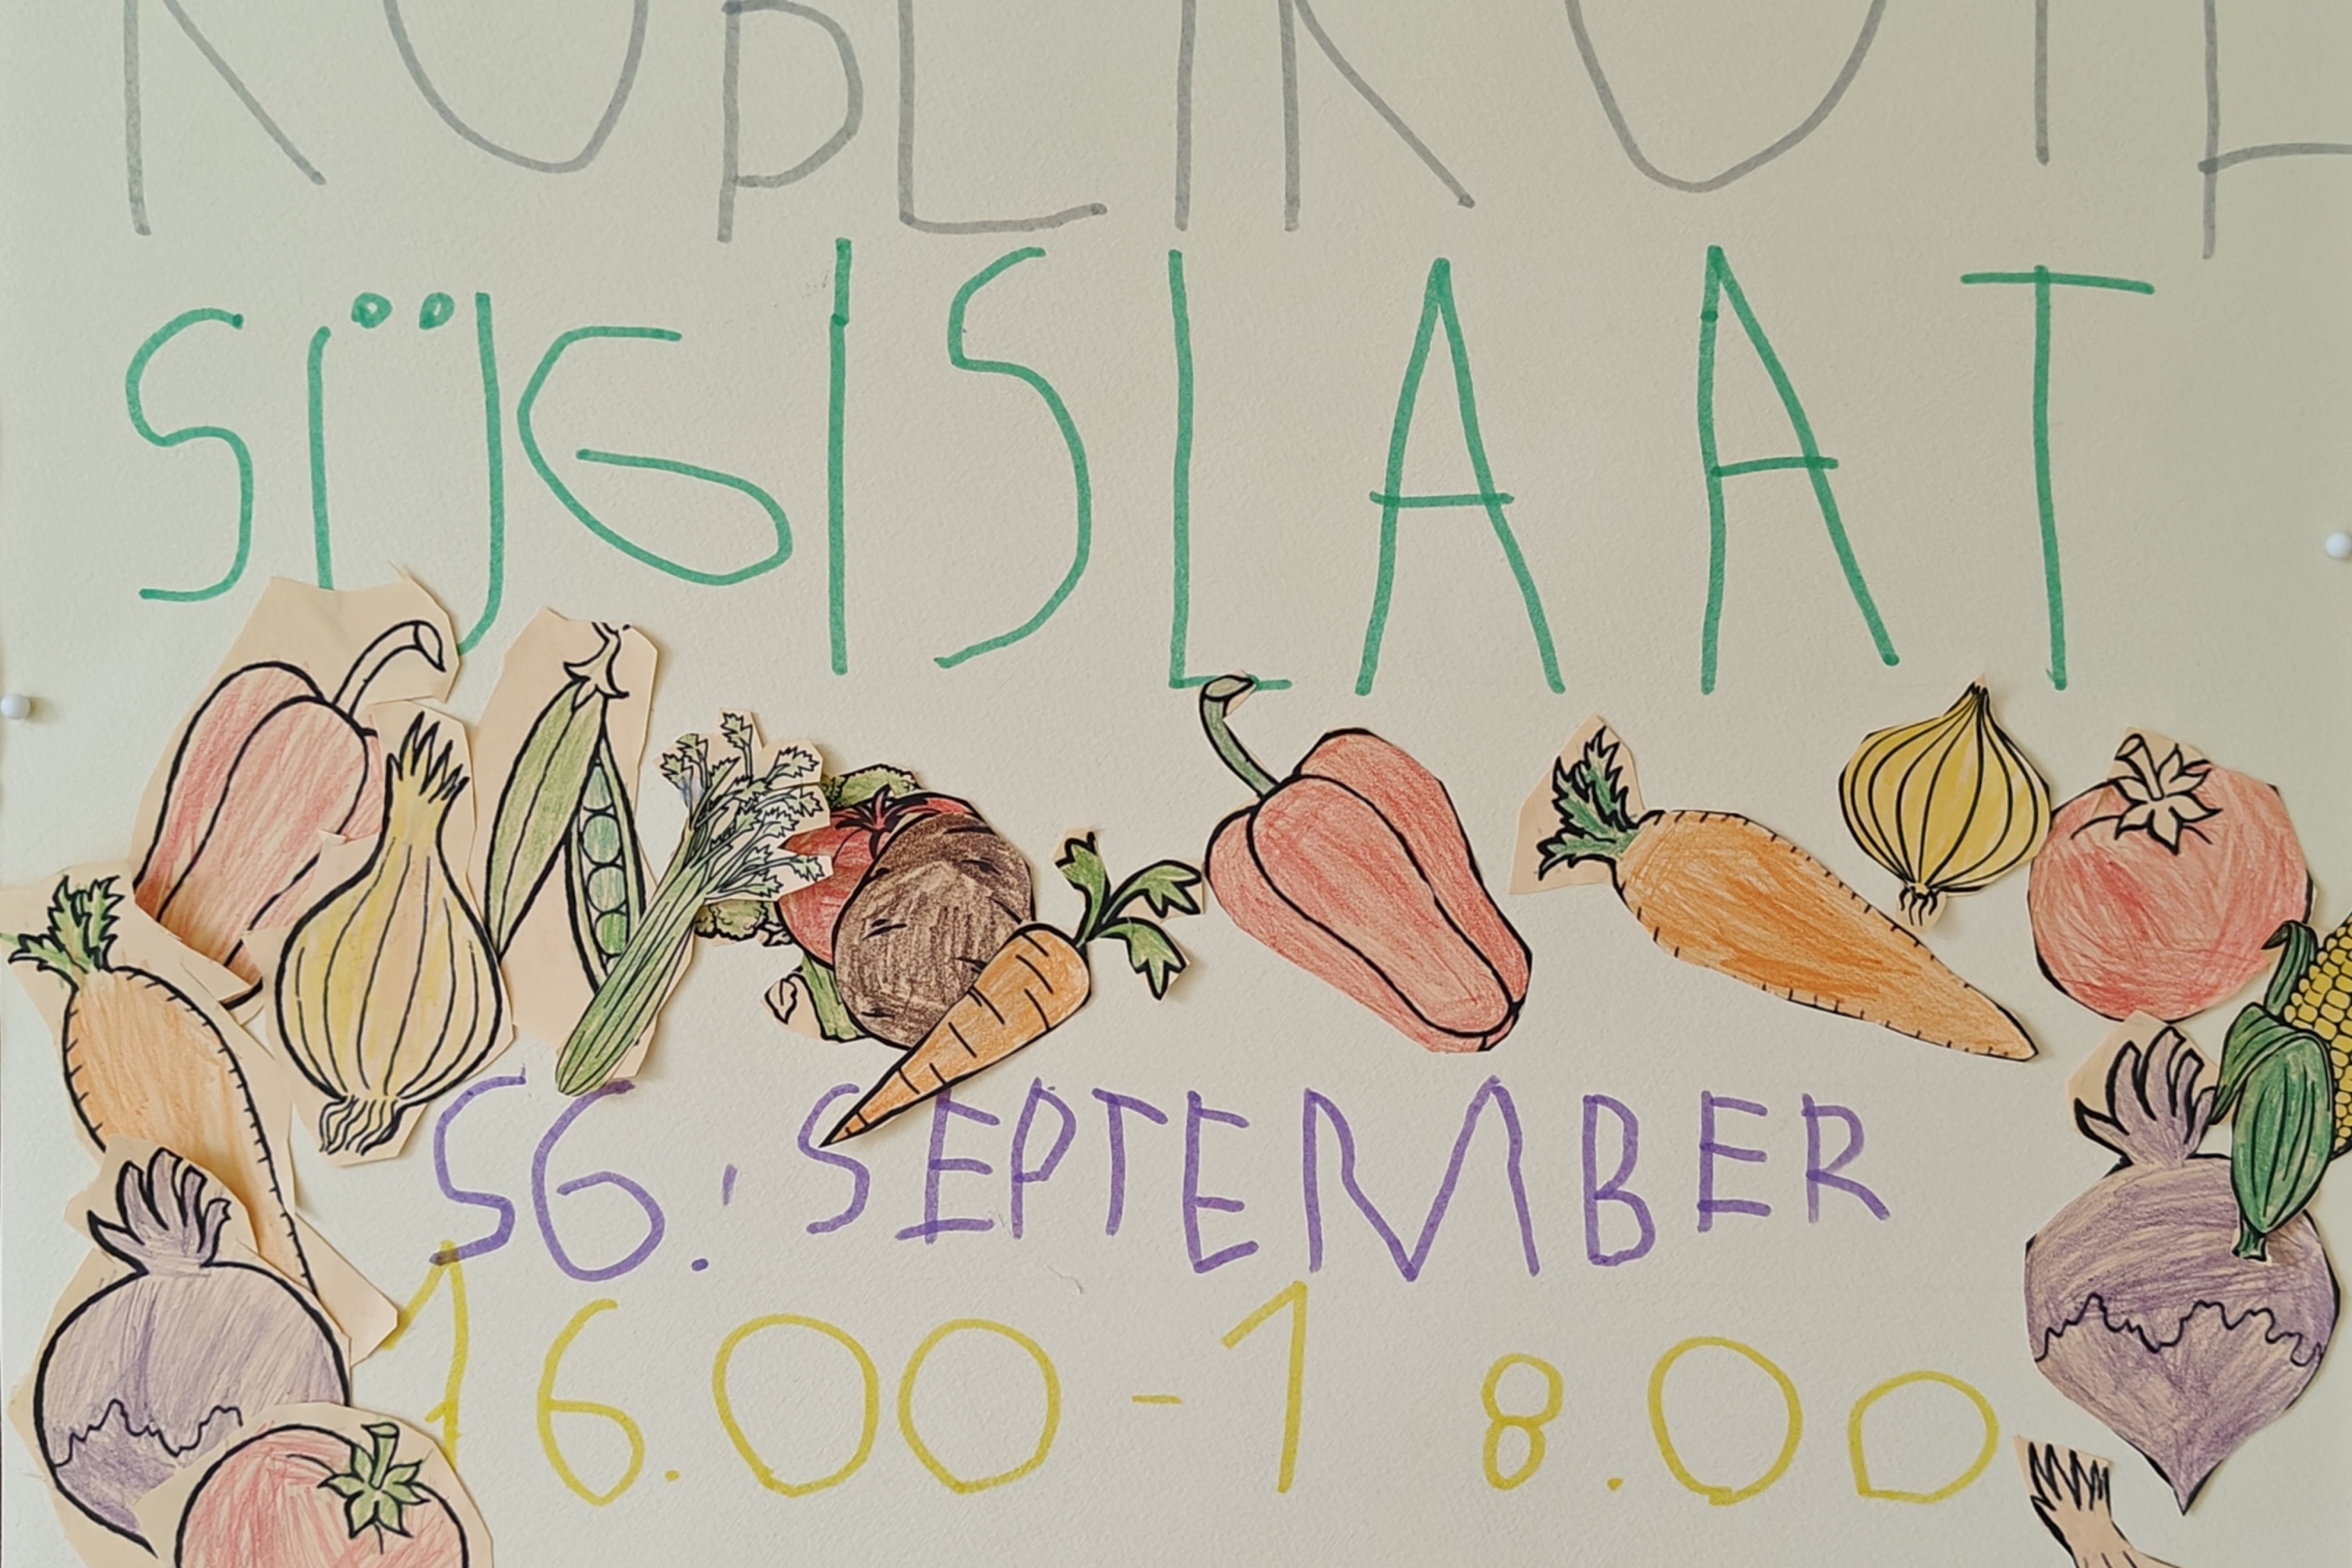 SÜGISLAAT
S6. SEPTEMBER
16.00-18.00